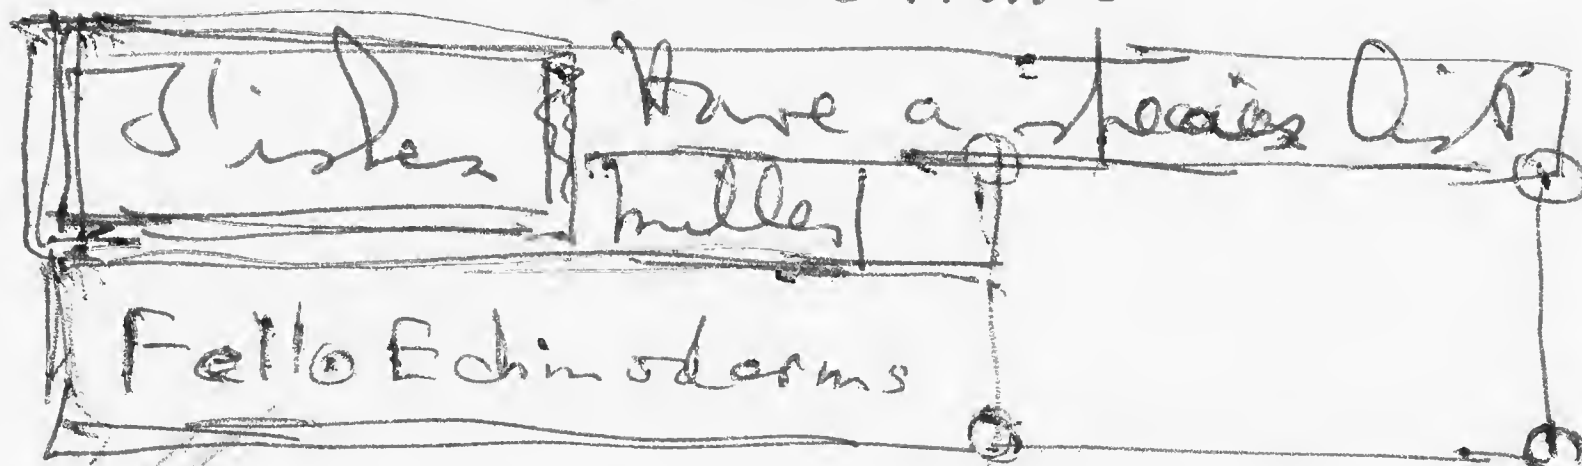 Fishes Have a species list
Fello Echinoderms